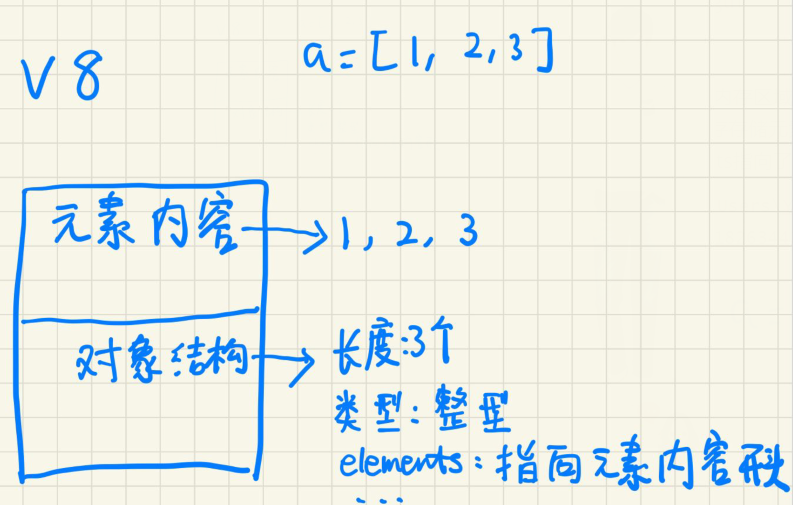 V8
a=[1, 2,3]
元素内容
1, 2, 3
对象结构
长度:3个
类型:整型
elements:指向元素内容开头
...